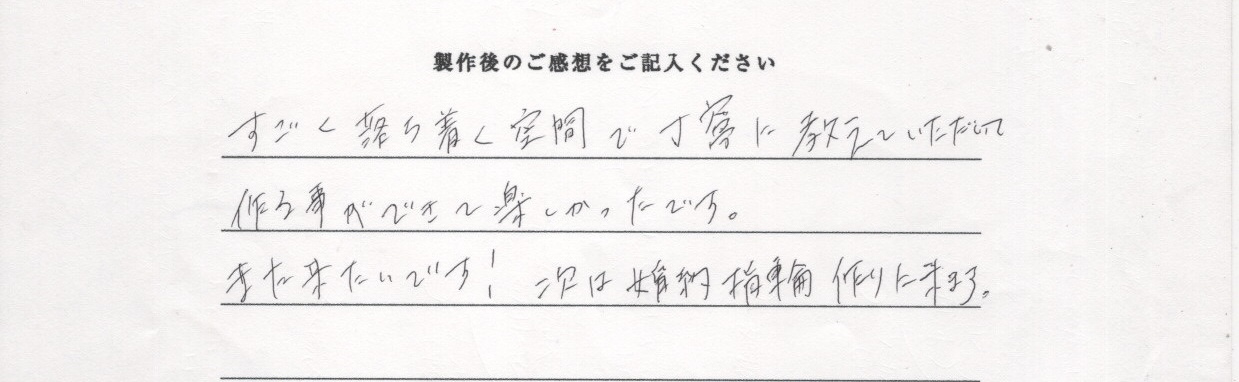 製作後のご感想をご記入ください
すごく落ち着く空間で丁寧に教えていただいて
作る事ができて楽しかったです。
また来たいです! 次は婚約指輪作りに来ます。